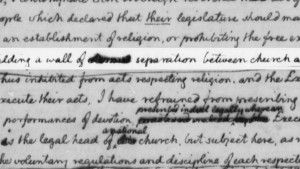 ople which declared that their legislature should ma
an establishment of religion, or prohibiting the free ex
dding a wall of separation between church a
thus inhibited from acts respecting religion, and the Exe
execute their acts, I have refrained from prescribing
performances of devotion Exec
a national
as the legal head of church, but subject here, as
the voluntary regulations and discipline of each respect